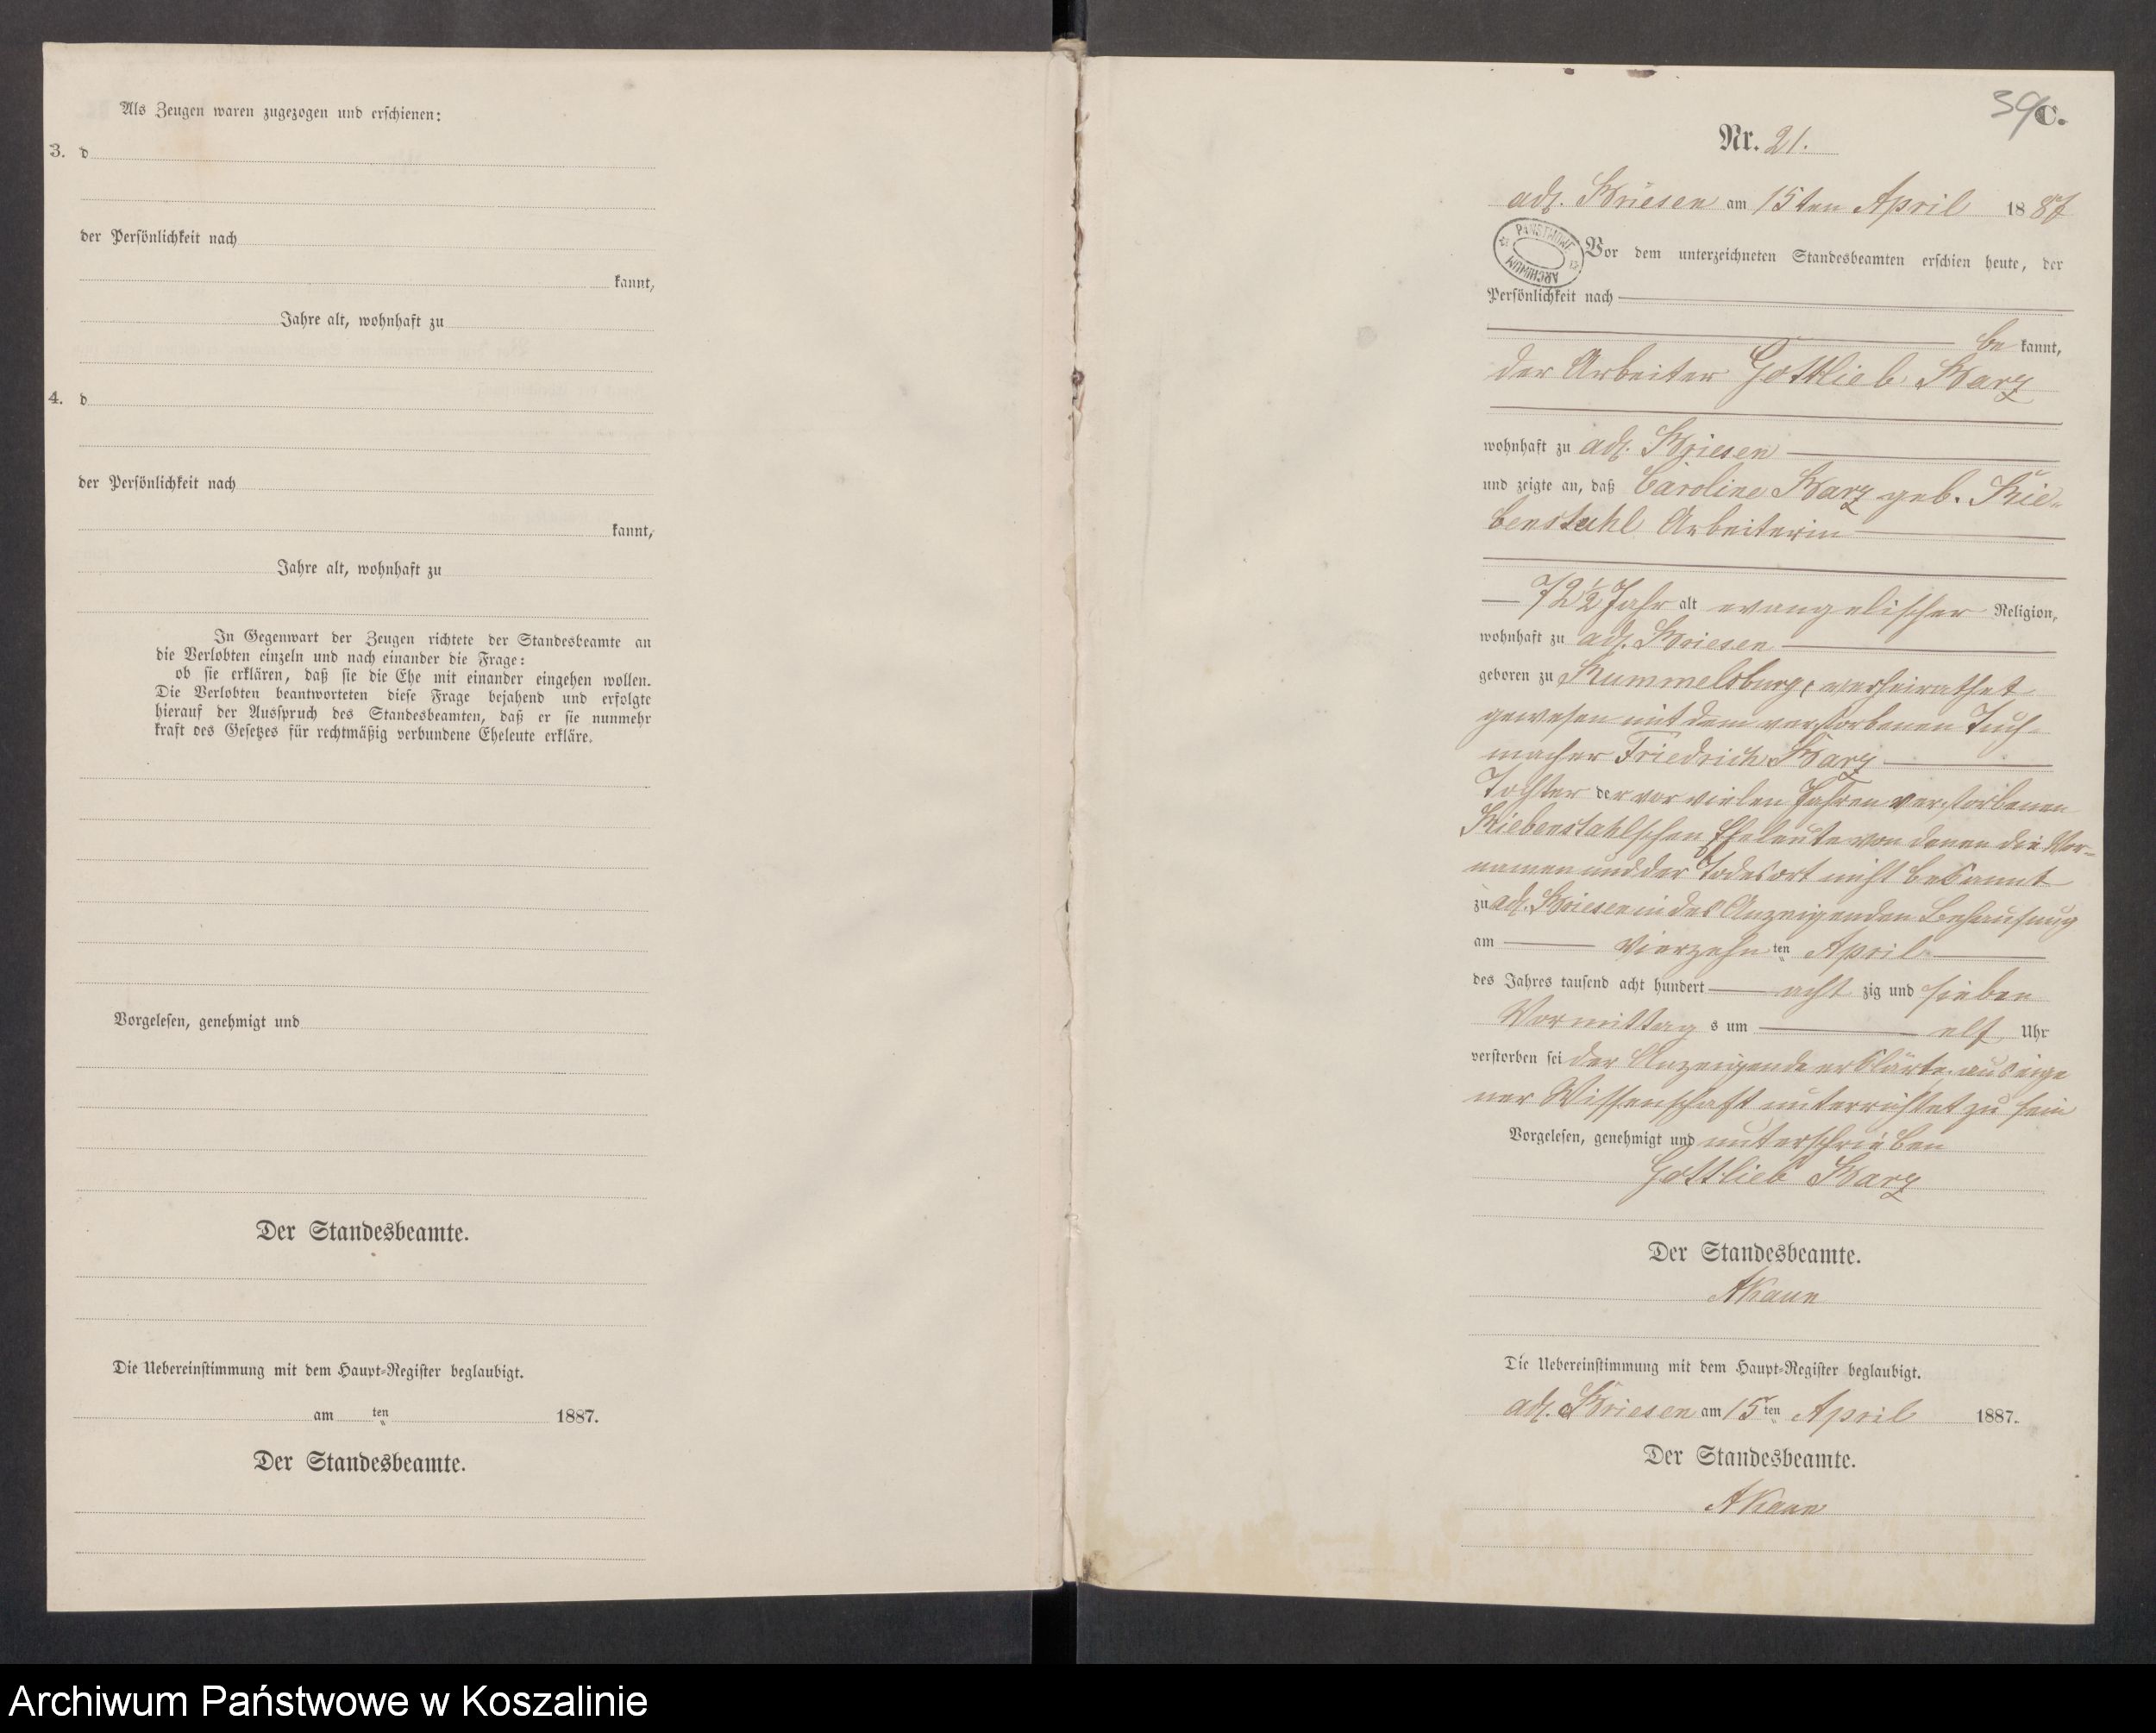 Als Zeugen waren zugezogen und erschienen:
3. d
der Persönlichkeit nach
kannt,
Jahre alt, wohnhaft zu
4. d
der Persönlichkeit nach
kannt,
Jahre alt, wohnhaft zu
In Gegenwart der Zeugen richtete der Standesbeamte an
die Verlobten einzeln und nach einander die Frage:
ob sie erklären, daß sie die Ehe mit einander eingehen wollen.
Die Verlobten beantworteten diese Frage bejahend und erfolgte
hierauf der Ausspruch des Standesbeamten, daß er sie nunmehr
kraft des Gesetzes für rechtmäßig verbundene Eheleute erkläre.
Vorgelesen, genehmigt und
Der Standesbeamte.
Die Uebereinstimmung mit dem Haupt-Register beglaubigt.
am ten 1887.
Der Standesbeamte.
39 C.
Nr. 21.
adl. Briesen am 15ten April 1887
PAŃSTWOWE ARCHIWUM
Vor dem unterzeichneten Standesbeamten erschien heute, der
Persönlichkeit nach
be kannt,
der Arbeiter Gottlieb Barz
wohnhaft zu adl. Briesen
und zeigte an, daß Caroline Barz geb. Rie-
benstahl Arbeiterin
72 1/2 Jahr alt evangelischer Religion,
wohnhaft zu adl. Briesen
geboren zu Rummelsburg, verheirathet
gewesen mit dem verstorbenen Tuch-
macher Friedrich Barz
Tochter der vor vielen Jahren verstorbenen
Riebenstahlschen Eheleute von denen die Vor-
namen und der Todesort nicht bekannt
zu adl. Briesen in des Anzeigenden Behausung
am vierzehn ten April
des Jahres tausend acht hundert acht zig und sieben
Vormittag s um elf Uhr
verstorben sei der Anzeigende erklärte, aus eige
ner Wissenschaft unterrichtet zu sein
Vorgelesen, genehmigt und unterschrieben
Gottlieb Barz
Der Standesbeamte.
A Kaun
Die Uebereinstimmung mit dem Haupt-Register beglaubigt.
adl. Briesen am 15 ten April 1887.
Der Standesbeamte.
A Kaun
Archiwum Państwowe w Koszalinie